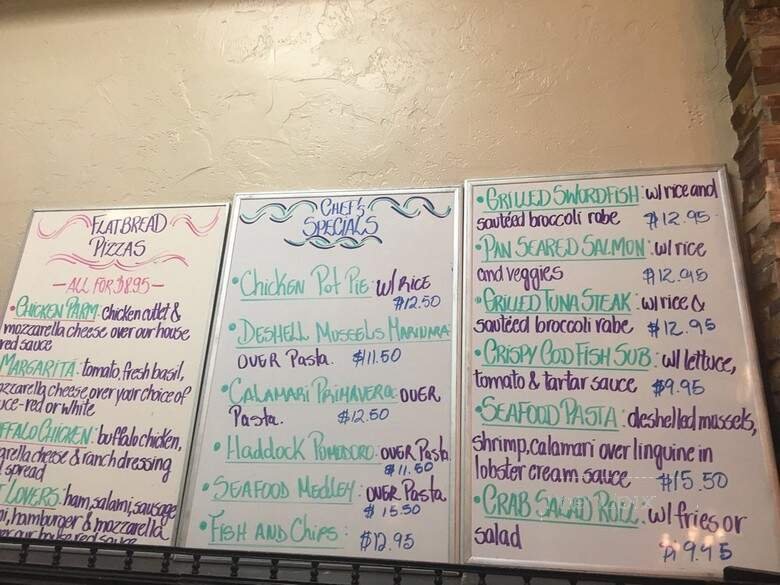 FLATBREAD
PIZZAS
— ALL FOR $8.95 —
• CHICKEN PARM: chicken cutlet &
mozzarella cheese over our house
red sauce
MARGARITA: tomato, fresh basil,
mozzarella cheese over your choice of
sauce-red or white
BUFFALO CHICKEN: buffalo chicken,
mozzarella cheese & ranch dressing
spread
LOVERS: ham, salami, sausage
hamburger & mozzarella
over our house red sauce
CHEF'S
SPECIALS
• CHICKEN POT PIE: W/ RICE
$12.50
• DESHELL MUSSELS MARINARA:
OVER Pasta. $11.50
• CALAMARI PRIMAVERA: OVER
Pasta. $12.50
• HADDOCK POMODORO: OVER Pasta
$11.50
• SEAFOOD MEDLEY: OVER Pasta
$15.50
• FISH AND CHIPS: $12.95
• GRILLED SWORDFISH: w/ rice and
sautéed broccoli rabe $12.95
• PAN SEARED SALMON: w/ rice
and veggies $12.95
• GRILLED TUNA STEAK: w/ rice &
sautéed broccoli rabe $12.95
• CRISPY COD FISH SUB: w/ lettuce,
tomato & tartar sauce $9.95
• SEAFOOD PASTA: deshelled mussels,
shrimp, calamari over linguine in
lobster cream sauce $15.50
• CRAB SALAD ROLL: w/ fries or
salad $9.45